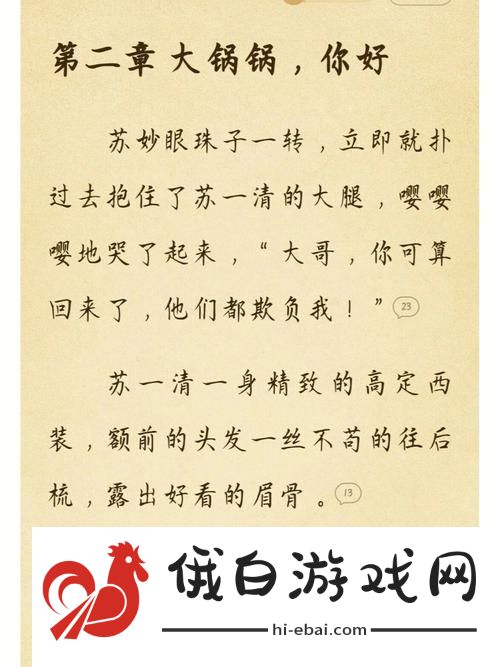 第二章 大锅锅，你好
苏妙眼珠子一转，立即就扑
过去抱住了苏一清的大腿，嘤嘤
嘤地哭了起来，“大哥，你可算
回来了，他们都欺负我！” 23
苏一清一身精致的高定西
装，额前的头发一丝不苟的往后
梳，露出好看的眉骨。 13
俄白游戏网
hi-ebai.com